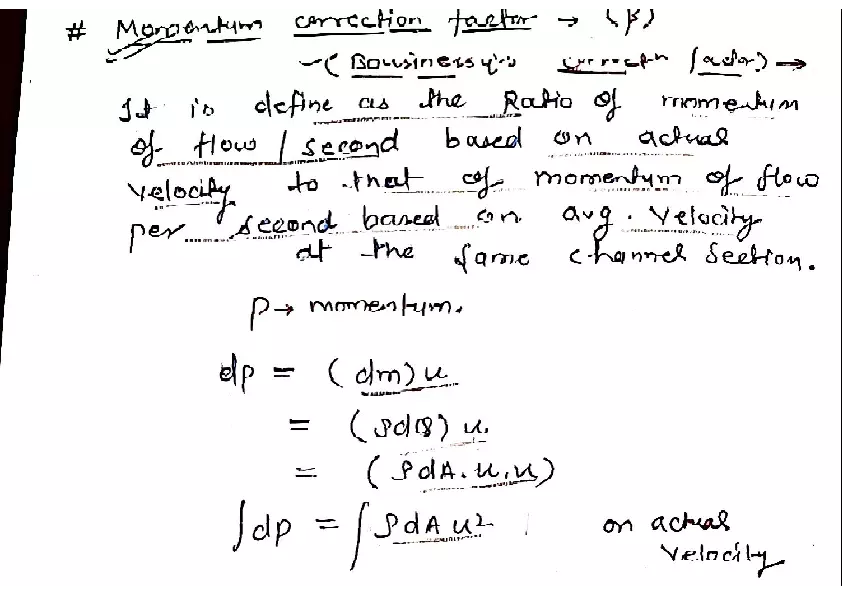 # Momentum correction factor → (β)
→ ( Boussinessq's correctn factor) →
It is define as the Ratio of momentum
of flow / second based on actual
velocity to that of momentum of flow
per second based on avg. velocity
at the same channel section.
P → momentum.
dp = (dm) u
= (ρdQ) u.
= (ρdA.u.u)
∫dp = ∫ρdA u² on actual
velocity